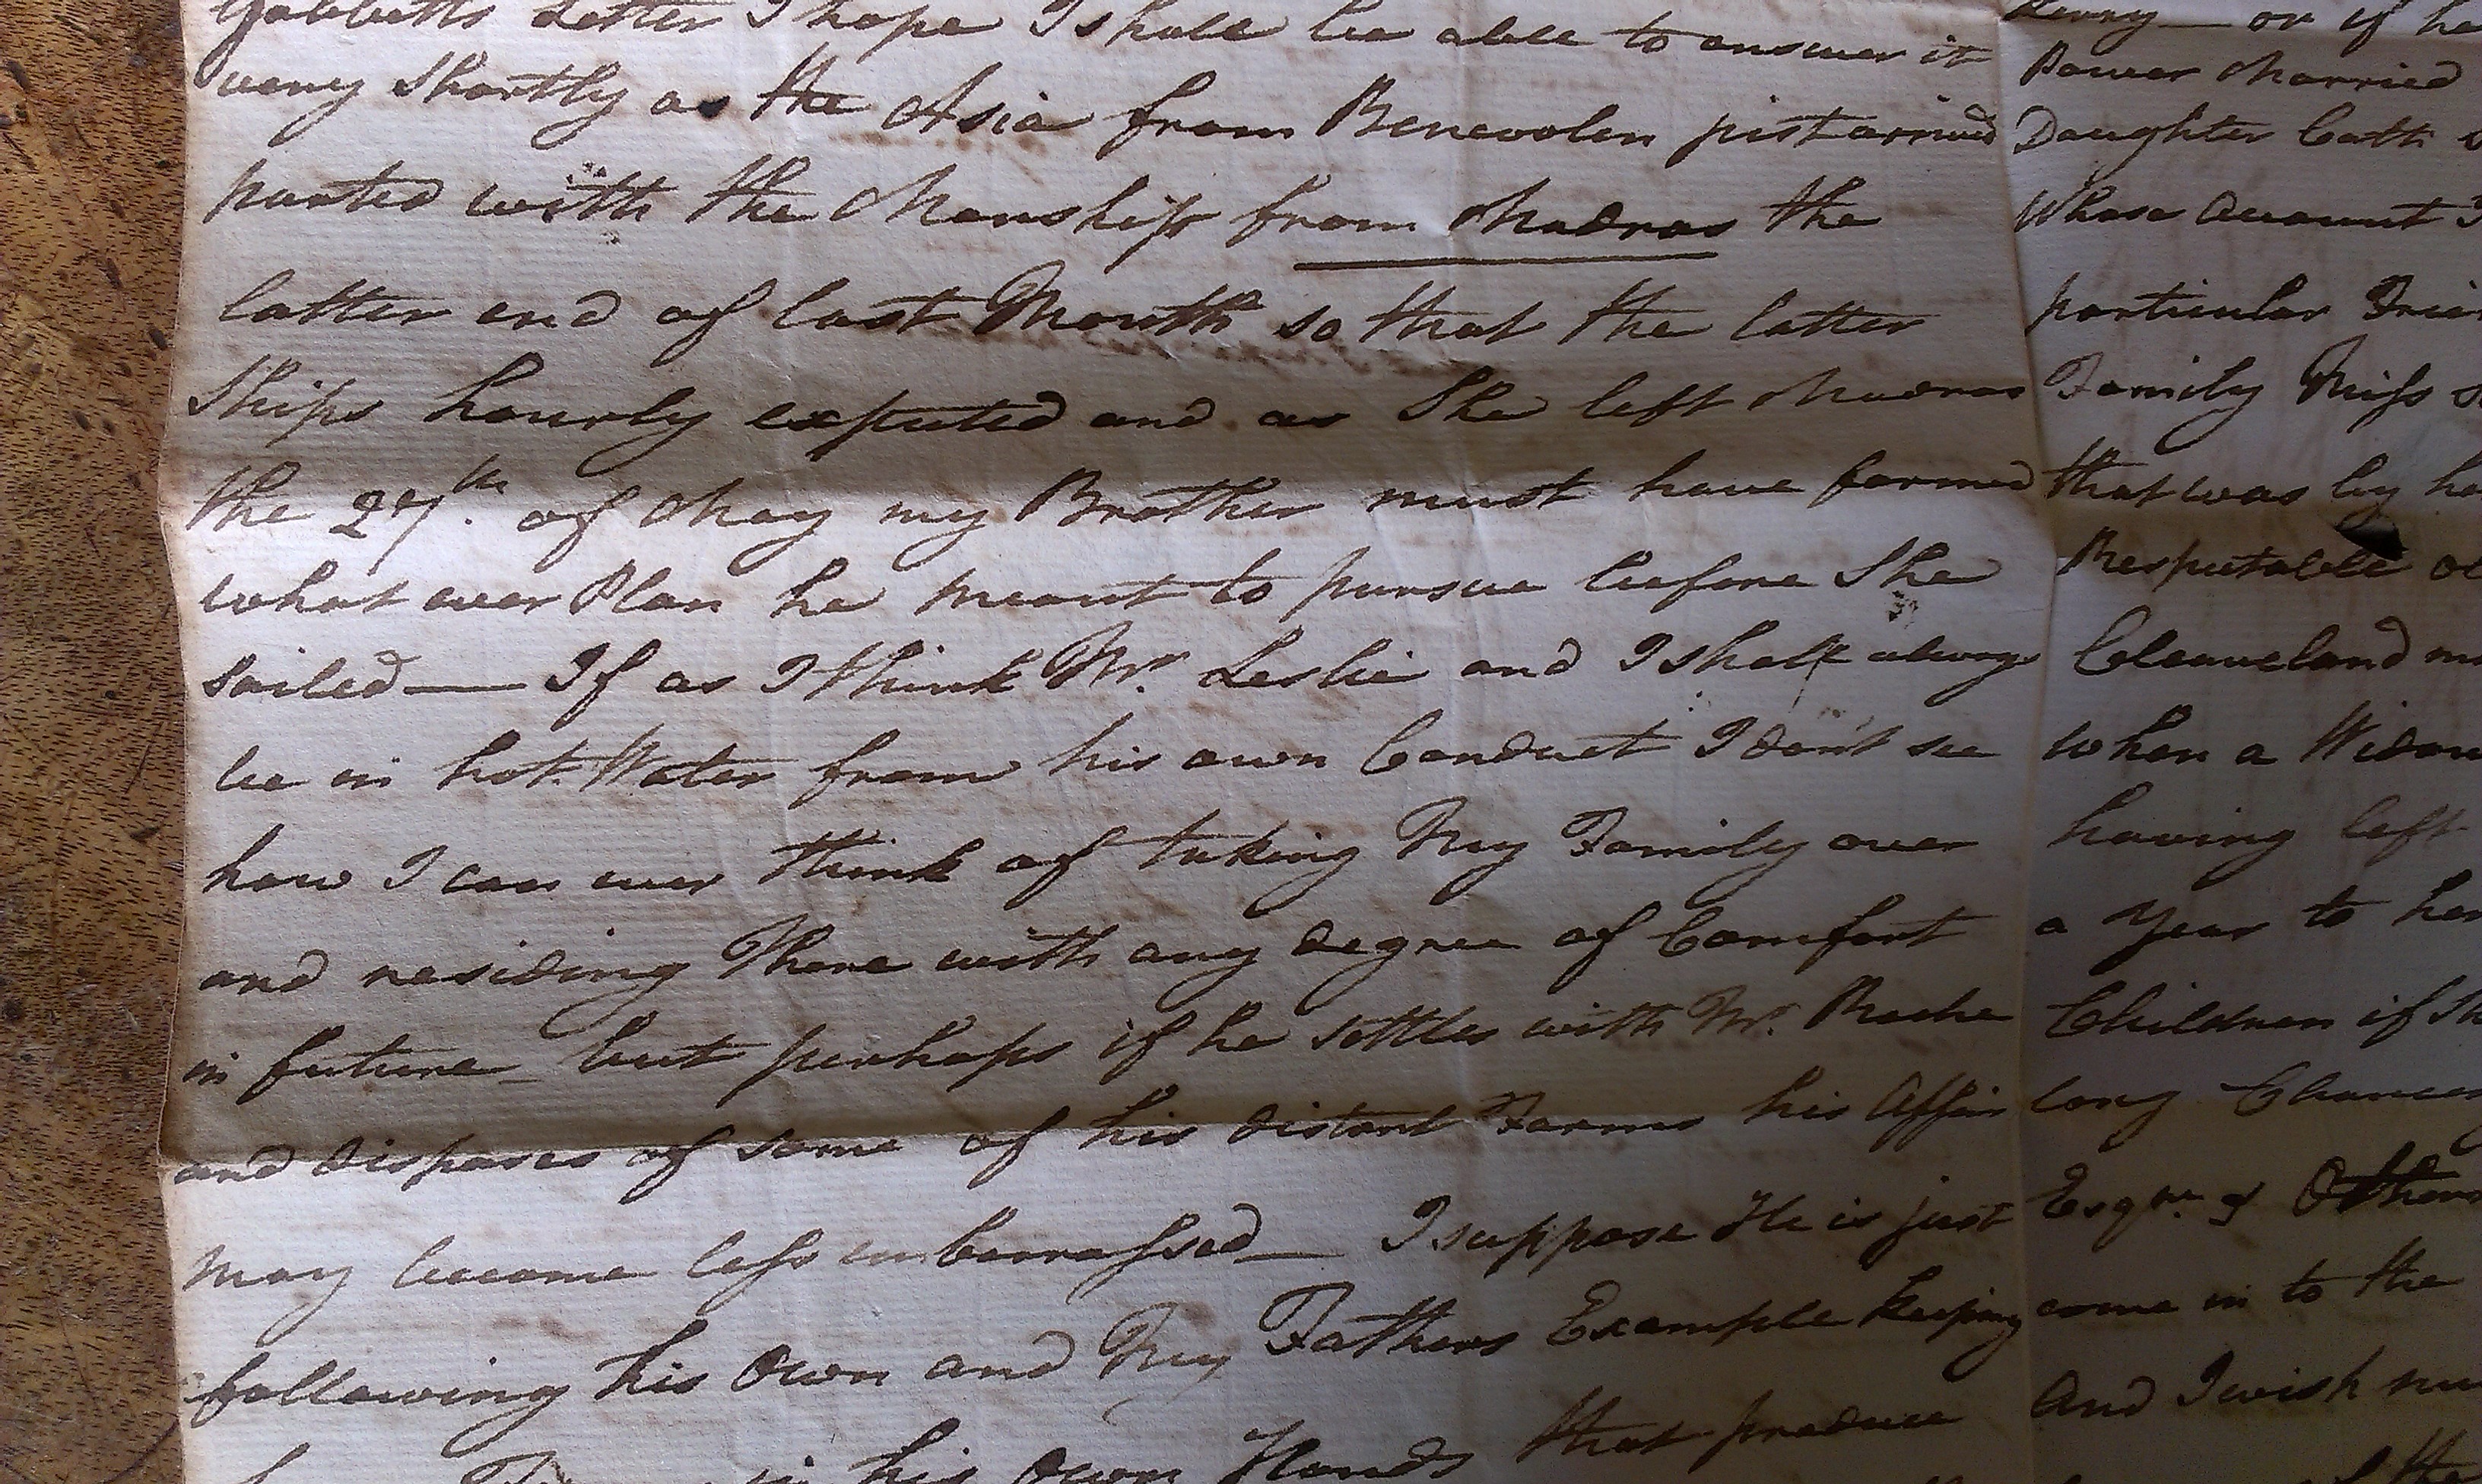 Gabbetts Letter I hope I shall be able to answer it
very Shortly as the Asia from Benevolen just arrived
parted with the Manship from Madras the
latter end of last Month so that the latter
Ships hourly expected and as She left Madras
the 27th. of May my Brother must have formed
what ever Plan he meant to pursue before She
sailed — If as I think Mr. Leslie and I shall always
be in hot Water from his own Conduct I don't see
how I can ever think of taking My Family over
and residing There with any degree of Comfort
in future — but perhaps if he settles with Mr. Roche
and disposes of some of his distant Farms his Affair
may become less embarrassed — I suppose He is just
following his Own and My Fathers Example keeping
in his Own Hands that produce
Kerry — or if he
Power Married
Daughter Cath
Whose Account I
particular
Family Miss
that was by
Respectable
Cleaveland
when a Widow
having left
a Year to her
Children if
long
Esqre. & Others
come in to the
And I wish